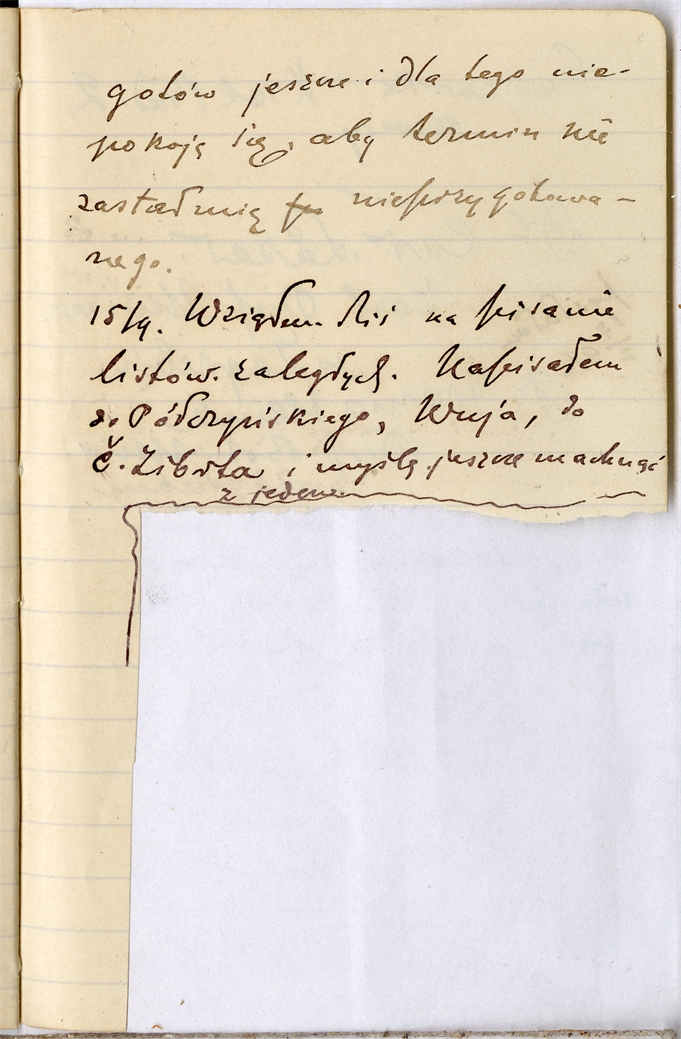 gotów jeszcze i dla tego nie-
pokoję się, aby termin nie
zastał mię nieprzygotowa-
nego.
15/9. Wziąłem się na pisanie
listów zaległych. Napisałem
do Półczyńskiego, Wuja, do
Č. Zíbrta i myślę jeszcze machnąć
z jeden